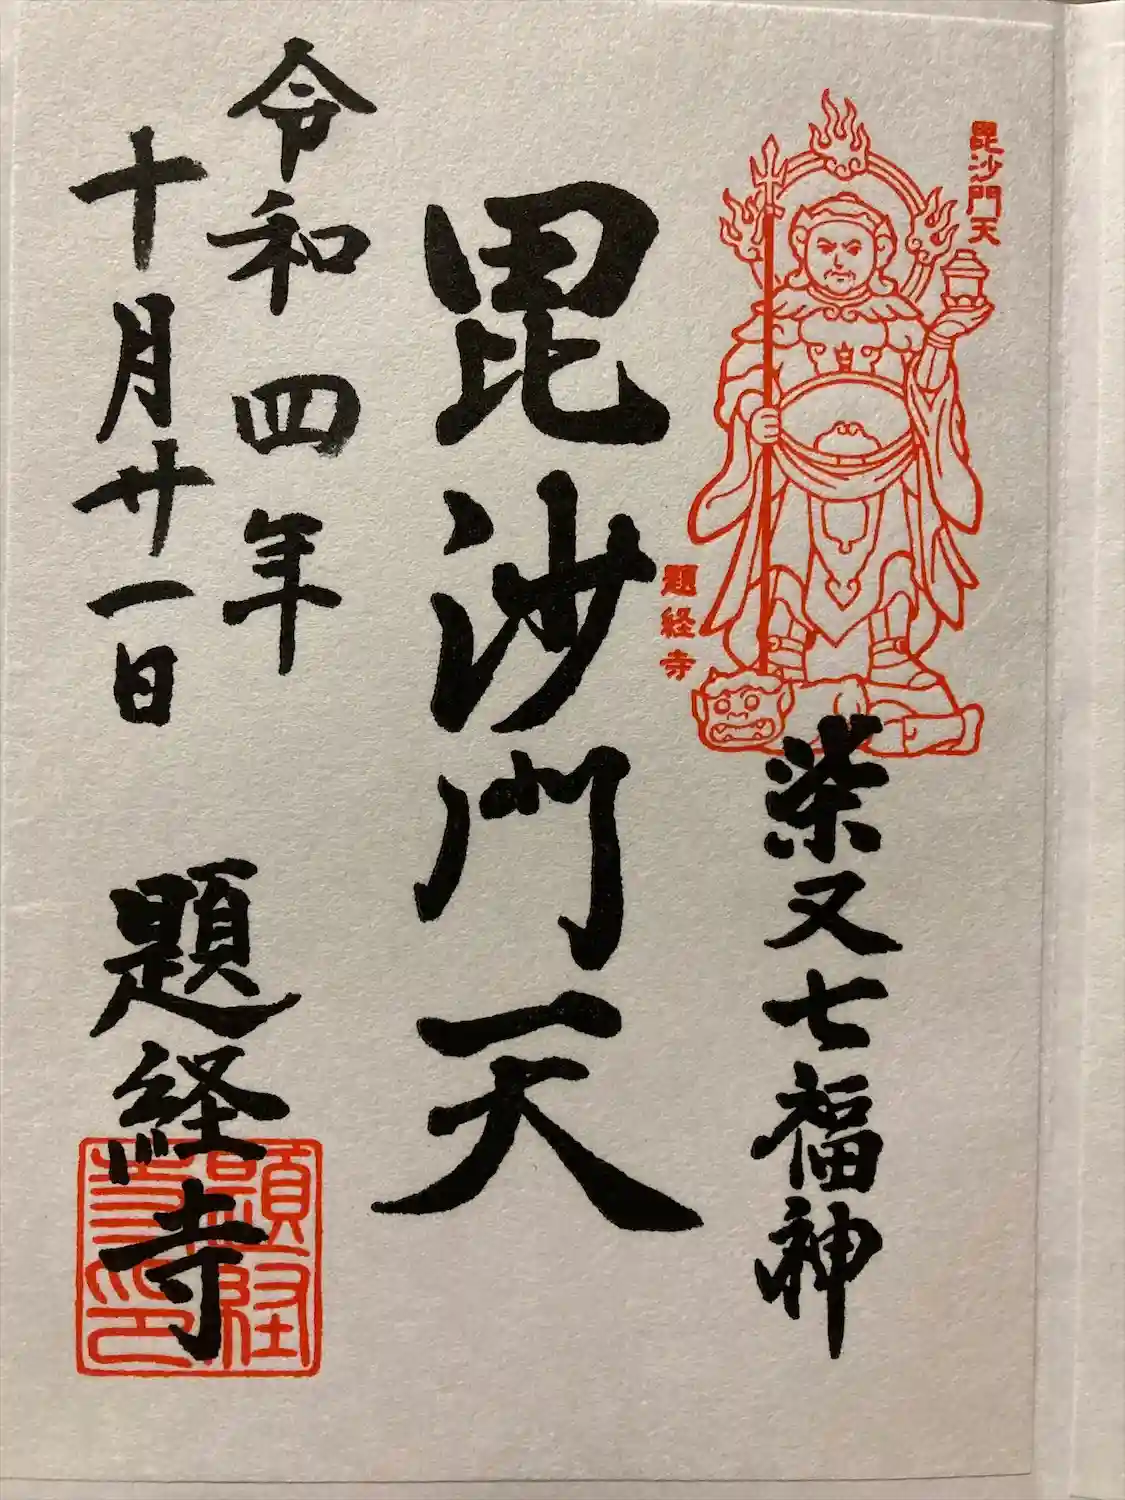 毘沙門天
柴又七福神
題経寺
毘沙門天
令和四年
十月廿一日
題経寺
題経寺印